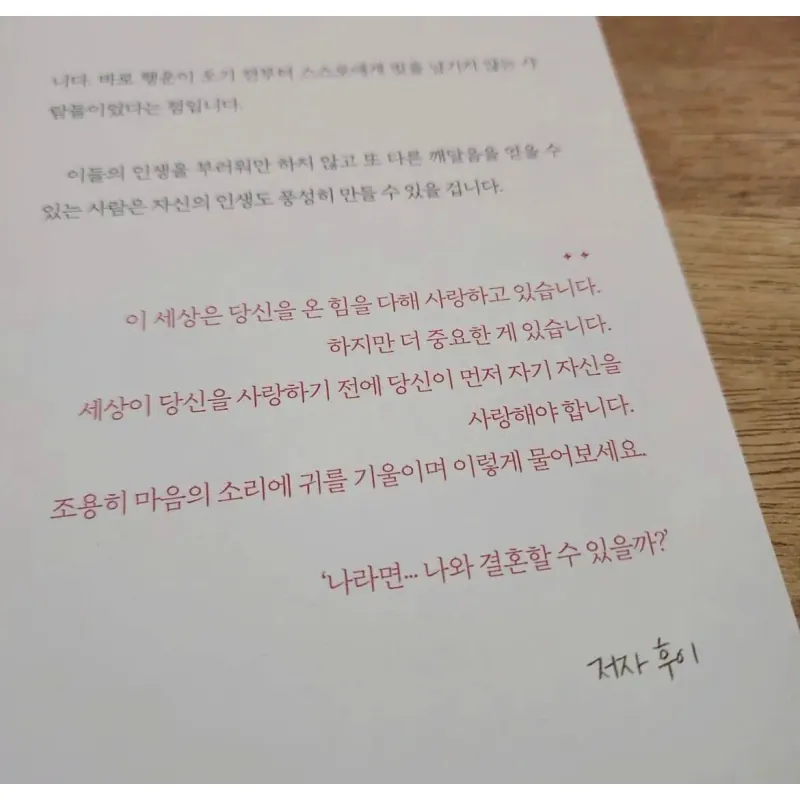 니다. 바로 행운이 오기 전부터 스스로에게 빛을 남기지 않는 사
람들이었다는 점입니다.
이들의 인생을 부러워만 하지 않고 또 다른 깨달음을 얻을 수
있는 사람은 자신의 인생도 풍성히 만들 수 있을 겁니다.
이 세상은 당신을 온 힘을 다해 사랑하고 있습니다.
하지만 더 중요한 게 있습니다.
세상이 당신을 사랑하기 전에 당신이 먼저 자기 자신을
사랑해야 합니다.
조용히 마음의 소리에 귀를 기울이며 이렇게 물어보세요.
‘나라면... 나와 결혼할 수 있을까?’
저자 후이